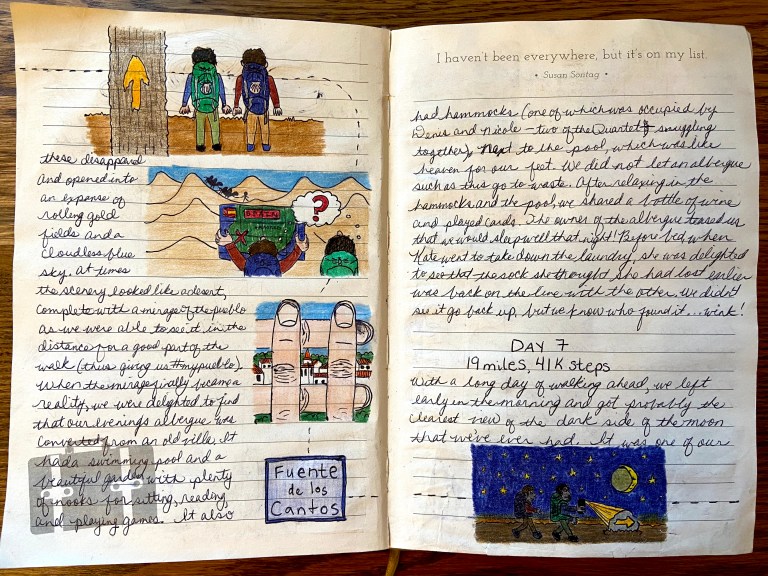 these disappeared
and opened into
an expanse of
rolling gold
fields and a
cloudless blue
sky. At times
the scenery looked like a desert,
complete with a mirage of the pueblo
as we were able to see it in the
distance for a good part of the
walk (thus giving us #mypueblo).
When the mirage finally became a
reality, we were delighted to find
that our evenings albergue was
converted from an old villa. It
had a swimming pool and a
beautiful garden with plenty
of nooks for sitting, reading,
and playing games. It also
SPAIN
?
Fuente
de los
Cantos
I haven't been everywhere, but it's on my list.
• Susan Sontag •
had hammocks (one of which was occupied by
Denis and Nicole - two of the Quartet, snuggling
together), next to the pool, which was like
heaven for our feet. We did not let an albergue
such as this go to waste. After relaxing in the
hammocks and the pool, we shared a bottle of wine
and played cards. The owner of the albergue teased us
that we would sleep well that night! Before bed, when
Kate went to take down the laundry, she was delighted
to see that the sock she thought she had lost earlier
was back on the line with the other. We didn't
see it go back up, but we know who found it... wink!
DAY 7
19 miles, 41K steps
With a long day of walking ahead, we left
early in the morning and got probably the
clearest view of the dark side of the moon
that we've ever had. It was one of our